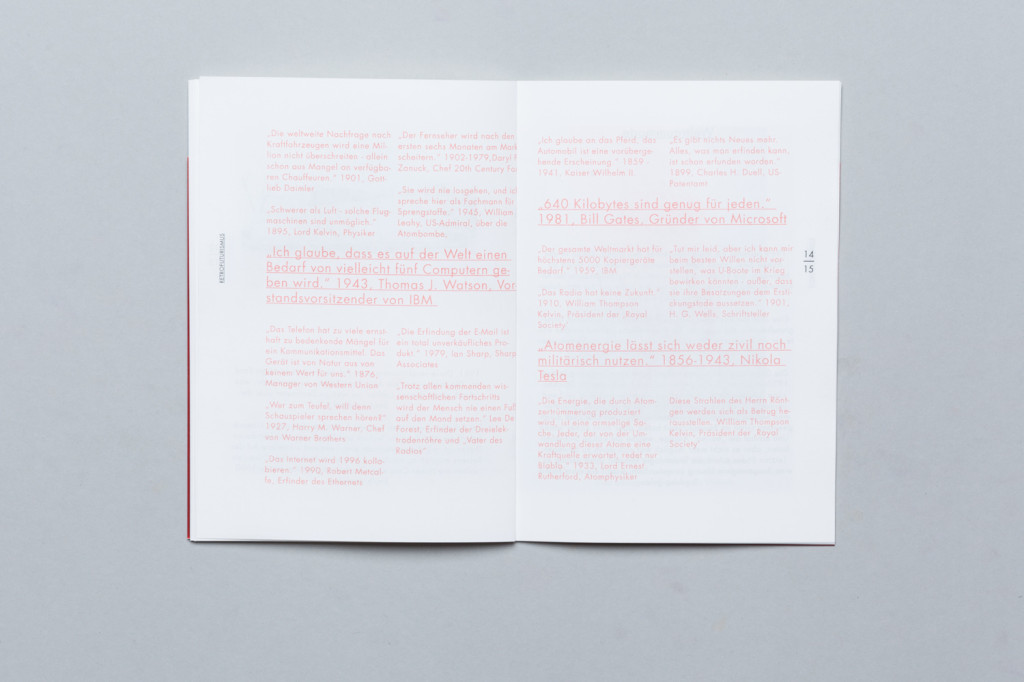 RETROFUTURISMUS
„Die weltweite Nachfrage nach
Kraftfahrzeugen wird eine Mil-
lion nicht überschreiten - allein
schon aus Mangel an verfügba-
ren Chauffeuren.“ 1901, Gott-
lieb Daimler
„Schwerer als Luft - solche Flug-
maschinen sind unmöglich.“
1895, Lord Kelvin, Physiker
„Der Fernseher wird nach den
ersten sechs Monaten am
scheitern.“ 1902-1979, Daryl
Zanuck, Chef 20th Century
„Sie wird nie losgehen, und
spreche hier als Fachmann für
Sprengstoffe.“ 1945, William
Leahy, US-Admiral, über die
Atombombe,
„Ich glaube, dass es auf der Welt einen
Bedarf von vielleicht fünf Computern ge-
ben wird.“ 1943, Thomas J. Watson, Vor
standsvorsitzender von IBM
„Das Telefon hat zu viele ernst-
haft zu bedenkende Mängel für
ein Kommunikationsmittel. Das
Gerät ist von Natur aus von
keinem Wert für uns.“ 1876,
Manager von Western Union
„Wer zum Teufel, will denn
Schauspieler sprechen hören?“
1927, Harry M. Warner, Chef
von Warner Brothers
„Das Internet wird 1996 kolla-
bieren.“ 1990, Robert Metcal-
fe, Erfinder des Ethernets
„Die Erfindung der E-Mail ist
ein total unverkäufliches Pro-
dukt.“ 1979, Ian Sharp, Sharp
Associates
„Trotz allen kommenden wis-
senschaftlichen Fortschritts
wird der Mensch nie einen Fuß
auf den Mond setzen.“ Lee De
Forest, Erfinder der Dreielek-
trodenröhre und „Vater des
Radios“
„Ich glaube an das Pferd, das
Automobil ist eine vorüberge-
hende Erscheinung.“ 1859
1941, Kaiser Wilhelm II.
„Es gibt nichts Neues mehr.
Alles, was man erfinden kann,
ist schon erfunden worden.“
1899, Charles H. Duell, US-
Patentamt
„640 Kilobytes sind genug für jeden.“
1981, Bill Gates, Gründer von Microsoft
„Der gesamte Weltmarkt hat für
höchstens 5000 Kopiergeräte
Bedarf.“ 1959, IBM
„Das Radio hat keine Zukunft.“
1910, William Thompson
Kelvin, Präsident der ‚Royal
Society‘
„Tut mir leid, aber ich kann mir
beim besten Willen nicht vor-
stellen, was U-Boote im Krieg
bewirken könnten - außer, daß
sie ihre Besatzungen dem Erst-
ickungstode aussetzen.“ 1901,
H. G. Wells, Schriftsteller
14
15
„Atomenergie lässt sich weder zivil noch
militärisch nutzen.“ 1856-1943, Nikola
Tesla
„Die Energie, die durch Atom-
zertrümmerung produziert
wird, ist eine armselige Sa-
che. Jeder, der von der Um-
wandlung dieser Atome eine
Kraftquelle erwartet, redet nur
Blabla.“ 1933, Lord Ernest,
Rutherford, Atomphysiker
Diese Strahlen des Herrn Rönt-
gen werden sich als Betrug he-
rausstellen. William Thompson
Kelvin, Präsident der ‚Royal
Society‘